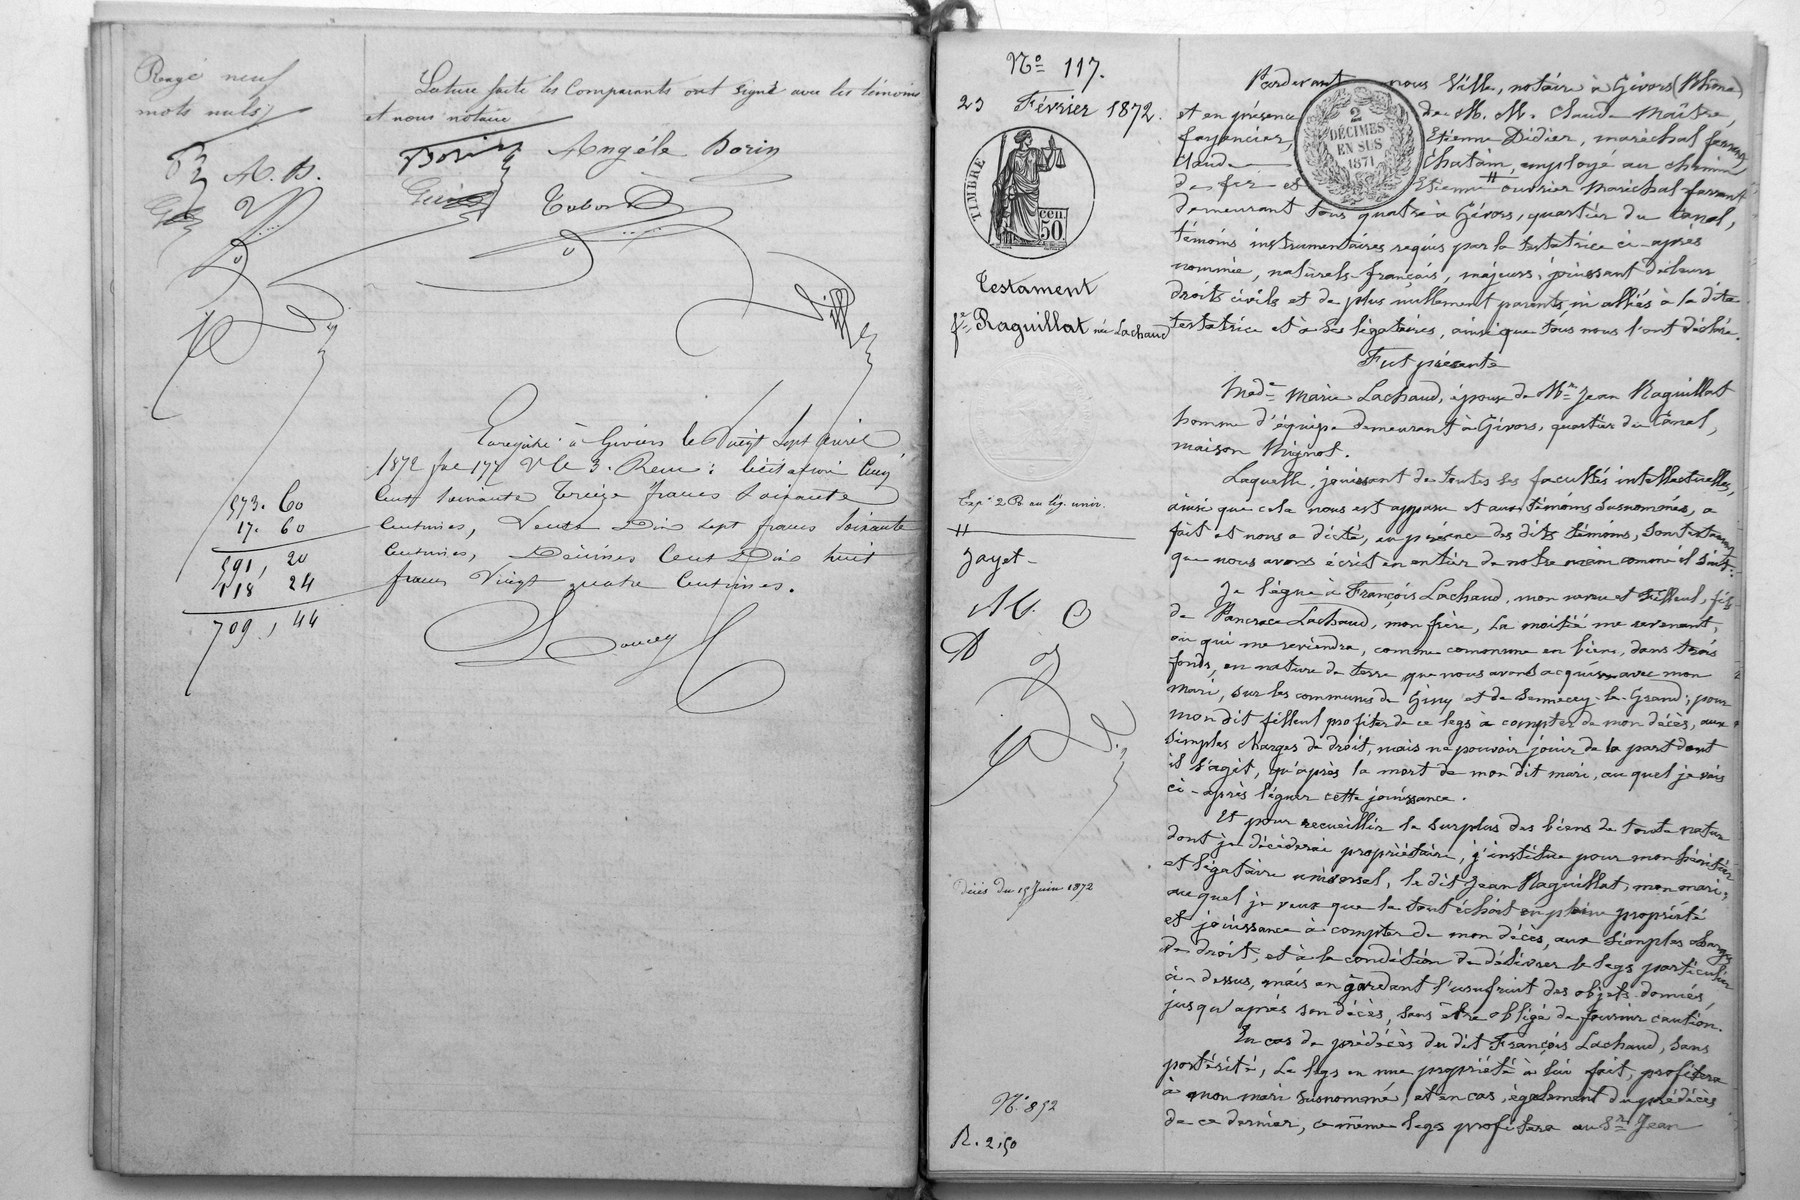 Rayé neuf
mots nuls
A. B.
Lecture faite les Comparants ont signé avec les témoins
et nous notaire
Dorin Angéle Dorin
Enregistré à Givors le Vingt Sept avril
1872 fol 177 Vo Ce 3. Recu : licitation Cinq
Cent soixante treize francs Soixante
Centimes, Vente Dix sept francs Soixante
Centimes, Décimes Cent Dix huit
francs Vingt quatre Centimes.
573. 60
17. 60
591, 20
118 24
709, 44
No 117.
23 Février 1872.
TIMBRE
50 cen.
Testament
fe Raguillat née Lachaud
Expn 2 R au lég. univ.
Jayet
M. C
Décès du 15 Juin 1872
N. 852
R. 2,50
2
DÉCIMES
EN SUS
1871
Pardevant nous Ville, notaire à Givors (Rhône)
et en présence de M. M. Claude Maître,
fayencier, Etienne Didier, maréchal ferrant
Claude Chatain, employé au chemin
de fer et Etienne ouvrier maréchal-ferrant
demeurant tous quatre à Givors, quartier du Canal,
témoins instrumentaires requis par la testatrice ci-après
nommée, naturels français, majeurs, jouissant de leurs
droits civils et de plus nullement parents ni alliés à la dite
testatrice et à ses légataires, ainsi que tous nous l'ont déclaré.
Fut présente
Made Marie Lachaud, épouse de Mr Jean Raguillat
homme d'équipe demeurant à Givors, quartier du Canal,
maison Mignot.
Laquelle, jouissant de toutes ses facultés intellectuelles,
ainsi que cela nous est apparu et aux témoins susnommés, a
fait et nous a dicté, en présence des dits témoins, son testament
que nous avons écrit en entier de notre main comme il suit:
Je lègue à François Lachaud, mon neveu et filleul, fils
de Pancrace Lachaud, mon frère, la moitié me revenant,
ou qui me reviendra, comme commune en biens, dans trois
fonds, en nature de terre que nous avons acquis avec mon
mari, sur les communes de Gigny et de Sennecey-le-Grand; pour
mon dit filleul profiter de ce legs à compter de mon décès, aux
simples charges de droit, mais ne pouvoir jouir de la part dont
il s'agit, qu'après la mort de mon dit mari, au quel je vais
ci-après léguer cette jouissance.
Et pour recueillir le surplus des biens de toute nature
dont je décéderai propriétaire, j'institue pour mon héritier
et légataire universel, le dit Jean Raguillat, mon mari,
au quel je veux que le tout échoit en pleine propriété
et jouissance à compter de mon décès, aux simples charges
de droit, et à la condition de délivrer le legs particulier
ci-dessus, mais en gardant l'usufruit des objets donnés,
jusqu'après son décès, sans être obligé de fournir caution.
En cas de prédécès du dit François Lachaud, sans
postérité, le legs en nue propriété à lui fait, profitera
à mon mari susnommé, et en cas également du prédécès
de ce dernier, ce même legs profitera au Sr Jean